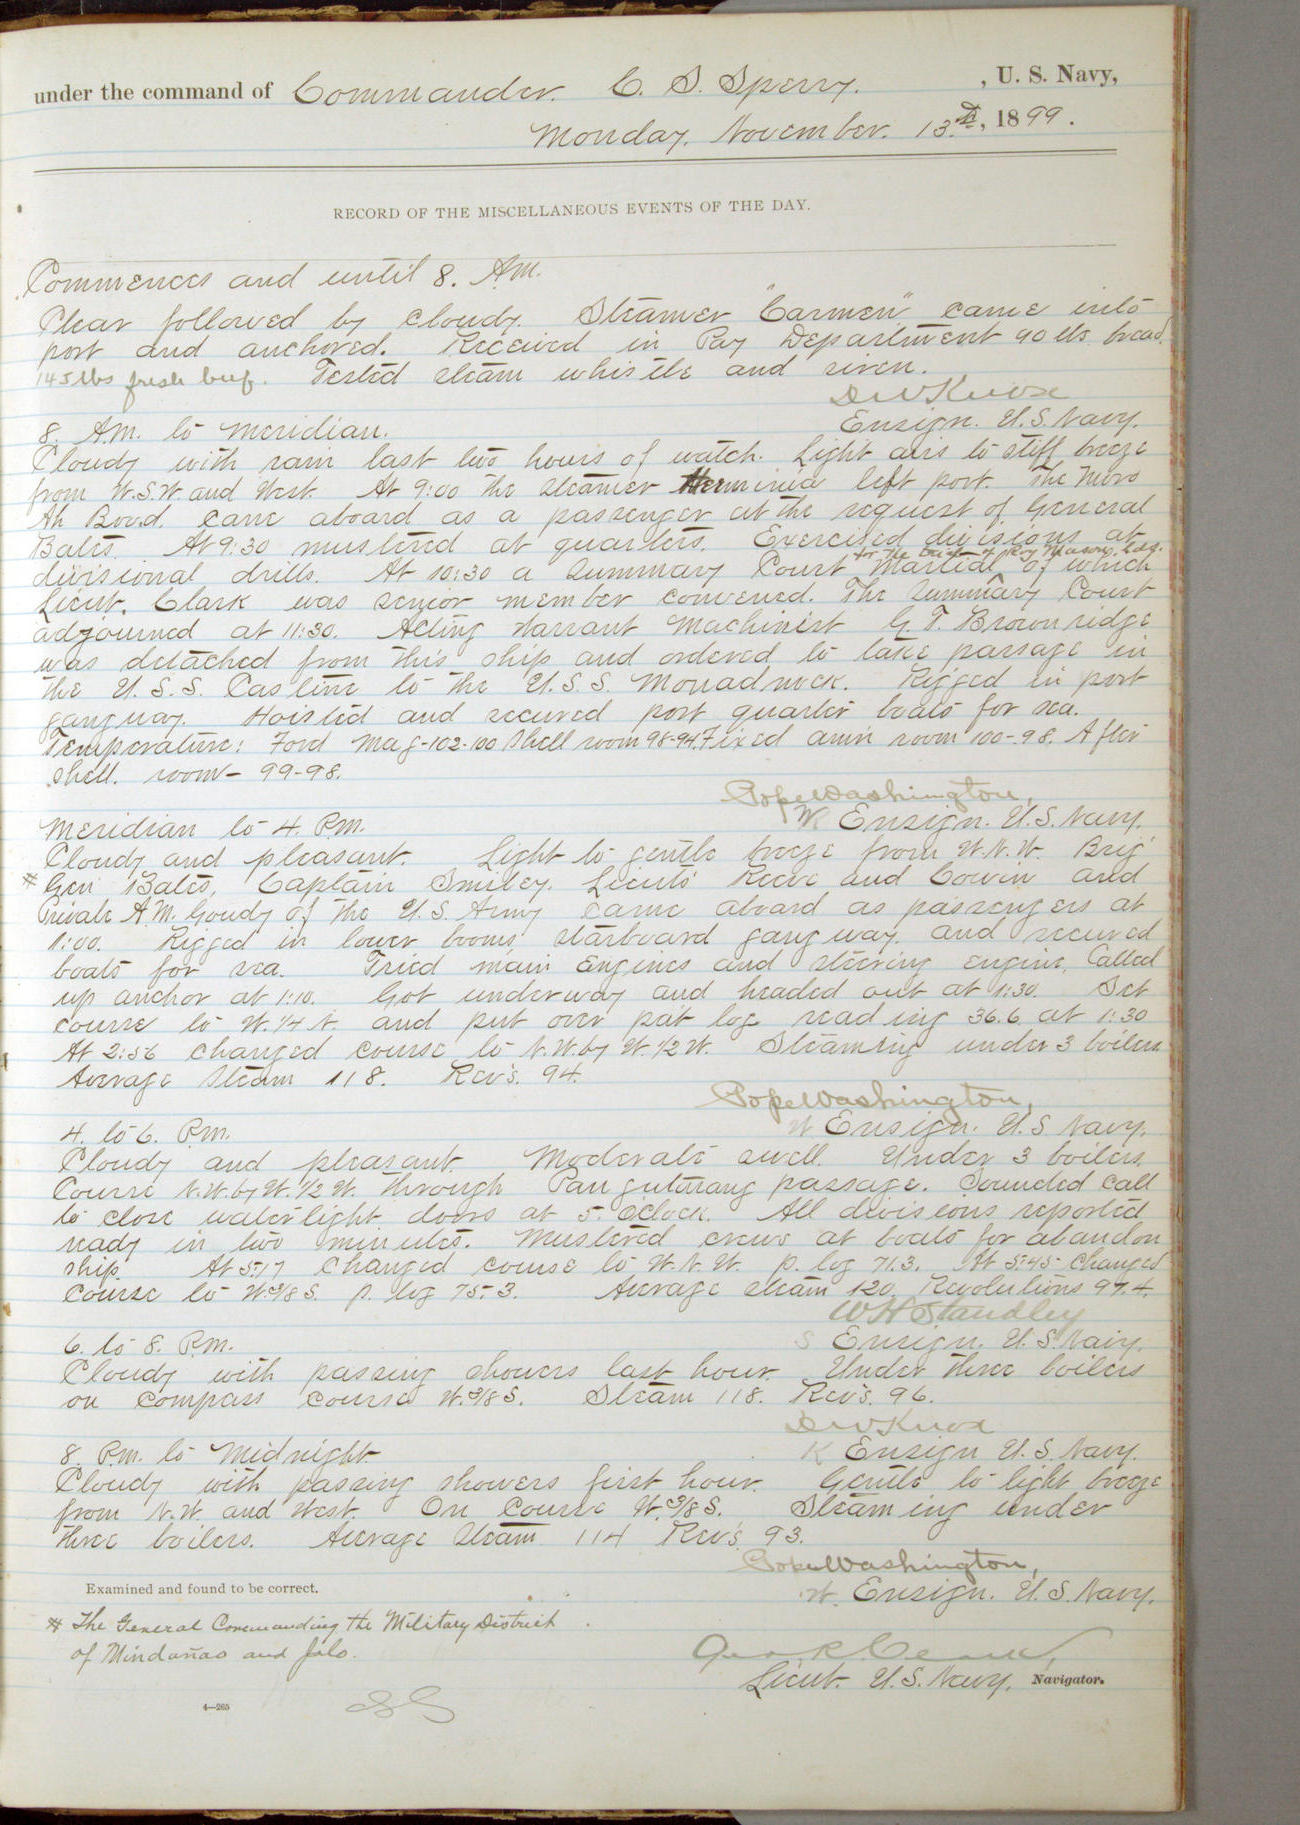 under the command of Commander. C. S. Sperry. , U. S. Navy,
Monday. November. 13.th, 1899.
RECORD OF THE MISCELLANEOUS EVENTS OF THE DAY.
Commences and until 8. A.M.
Clear followed by cloudy. Steamer "Carmen" came into
port and anchored. Received in Pay Department 90 lbs bread,
145 lbs fresh beef. Tested steam whistle and siren.
D W Knox
Ensign. U.S. Navy.
8. A.M. to Meridian.
Cloudy with rain last two hours of watch. Light airs to stiff breeze
from W.S.W. and West. At 9:00 the steamer Herminia left port. The Moro
Ah Boud. came aboard as a passenger at the request of General
Bates. At 9:30 mustered at quarters. Exercised divisions at
for the trial of Roy Mason, Lds.
divisional drills. At 10:30 a Summary Court Martial ^ of which
Lieut. Clark was senior member convened. The Summary Court
adjourned at 11:30. Acting Warrant Machinist G. T. Brownridge
was detached from this ship and ordered to take passage in
the U.S.S. Castine to the U.S.S. Monadnock. Rigged in port
gangway. Hoisted and secured port quarter boats for sea.
Temperature: Ford Mag-102-100 Shell room 98-94. Fixed amn room 100-98. After
shell. room- 99-98.
Pope Washington,
W Ensign. U.S. Navy.
Meridian to 4. P.M.
Cloudy and pleasant. Light to gentle breeze from W.N.W. Brig'
# Gen Bates, Captain Smiley. Lieuts' Reeve and Cowin and
Private A.M. Goudy of the U.S. Army came aboard as passengers at
1:00. Rigged in lower booms, starboard gangway. and secured
boats for sea. Tried main engines and steering engine, Called
up anchor at 1:10. Got underway and headed out at 1:30. Set
course to W.1/4 N. and put over pat log reading 36.6 at 1:30
At 2:56 changed course to N.W. by W.1/2 W. Steaming under 3 boilers
Average Steam 118. Rev's. 94.
Pope Washington,
W Ensign. U.S. Navy.
4. to 6. P.M.
Cloudy and pleasant. Moderate swell. Under 3 boilers.
Course N.W. by W.1/2 W. through Pangutarang passage. Sounded call
to close watertight doors at 5. oclock. All divisions reported
ready in two minutes. Mustered crews at boats for abandon
ship. At 5:17 changed course to W.N.W. p. log 71.3. At 5:45 changed
course to W.3/8 S. p. log 75.3. Average steam 120. Revolutions 97.4.
W H Standley
S Ensign. U.S. Navy.
6. to 8. P.M.
Cloudy with passing showers last hour. Under three boilers
on compass course W.3/8 S. Steam 118. Rev's. 96.
D W Knox
K Ensign U.S. Navy.
8. P.M. to Midnight
Cloudy with passing showers first hour. Gentle to light breeze
from N.W. and West. On Course W.3/8 S. Steaming under
three boilers. Average Steam 114 Rev's. 93.
Pope Washington,
W. Ensign. U.S. Navy.
Examined and found to be correct.
# The General Commanding the Military District
of Mindanao and Jolo.
Geo. R. Clark,
Lieut. U.S. Navy, Navigator.
4—265